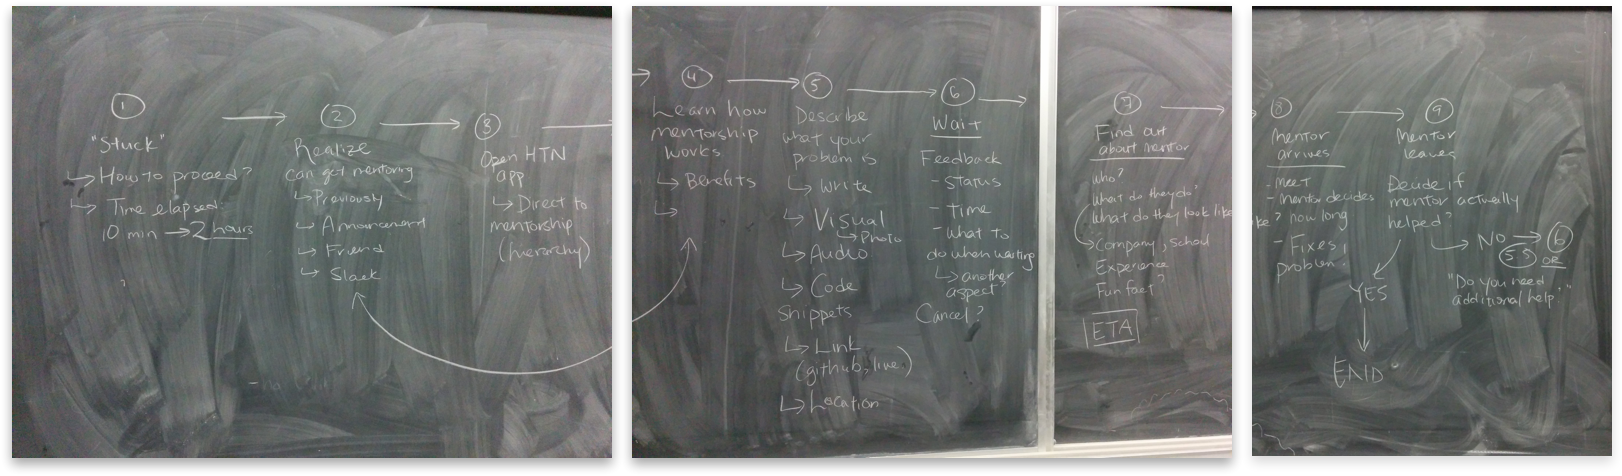 1
"Stuck"
↳ How to proceed?
↳ Time elapsed:
10 min → 2 hours
2
Realize
can get mentoring
↳ Previously
↳ Announcement
↳ Friend
↳ Slack
3
Open HTN
app
↳ Direct to
mentorship
(hierarchy)
4
Learn how
mentorship
works
↳ Benefits
↳
5
Describe
what your
problem is
↳ Write
↳ Visual
↳ Photo
↳ Audio
↳ Code
snippets
↳ Link
(github, live)
↳ Location
6
Wait
Feedback
- Status
- Time
- What to
do when waiting
↳ another
aspect?
Cancel?
7
Find out
about mentor
who?
What do they do?
What do they look like
Company, school
Experience
Fun fact?
ETA
8
Mentor
arrives
- Meet
- Mentor decides
ke? how long
- Fixes
problem.
9
Mentor
leaves
Decide if
mentor actually
helped?
↳ NO → 6
5.5 OR
"Do you need
additional help."
YES
END